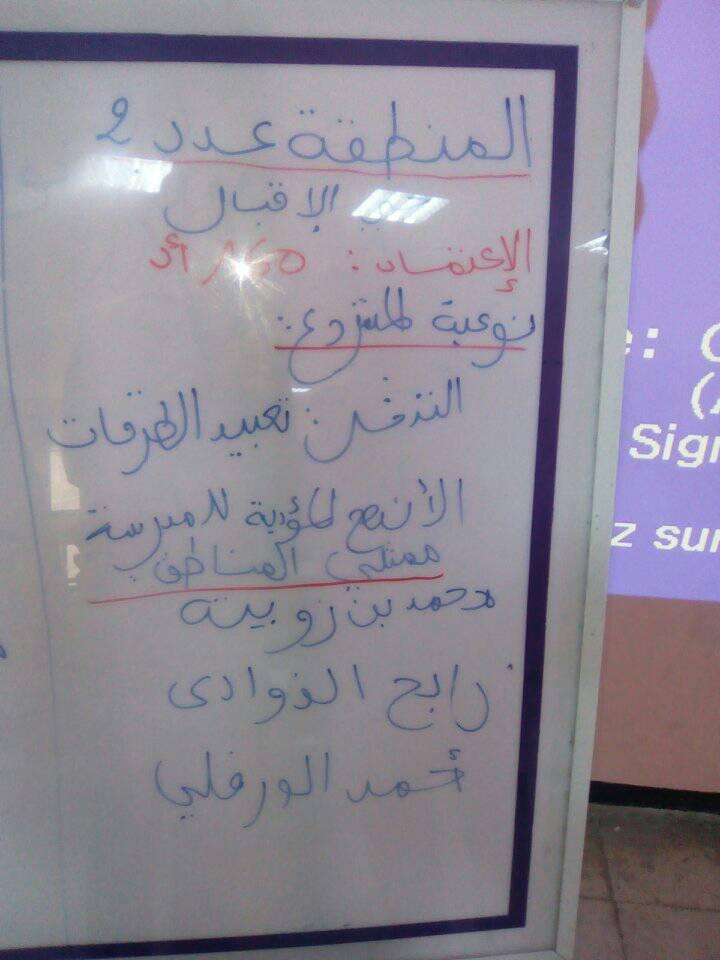 المنطقة عدد 2
حي الإقبال
الإعتماد: 160 أد
نوعية المشروع:
التدخل: تعبيد الطرقات
الأنهج المؤدية للمدرسة
ممثلي المناطق
محمد بن زوبية
رابح الذوادي
أحمد الورفلي
e: C
(A
Sign
z sur